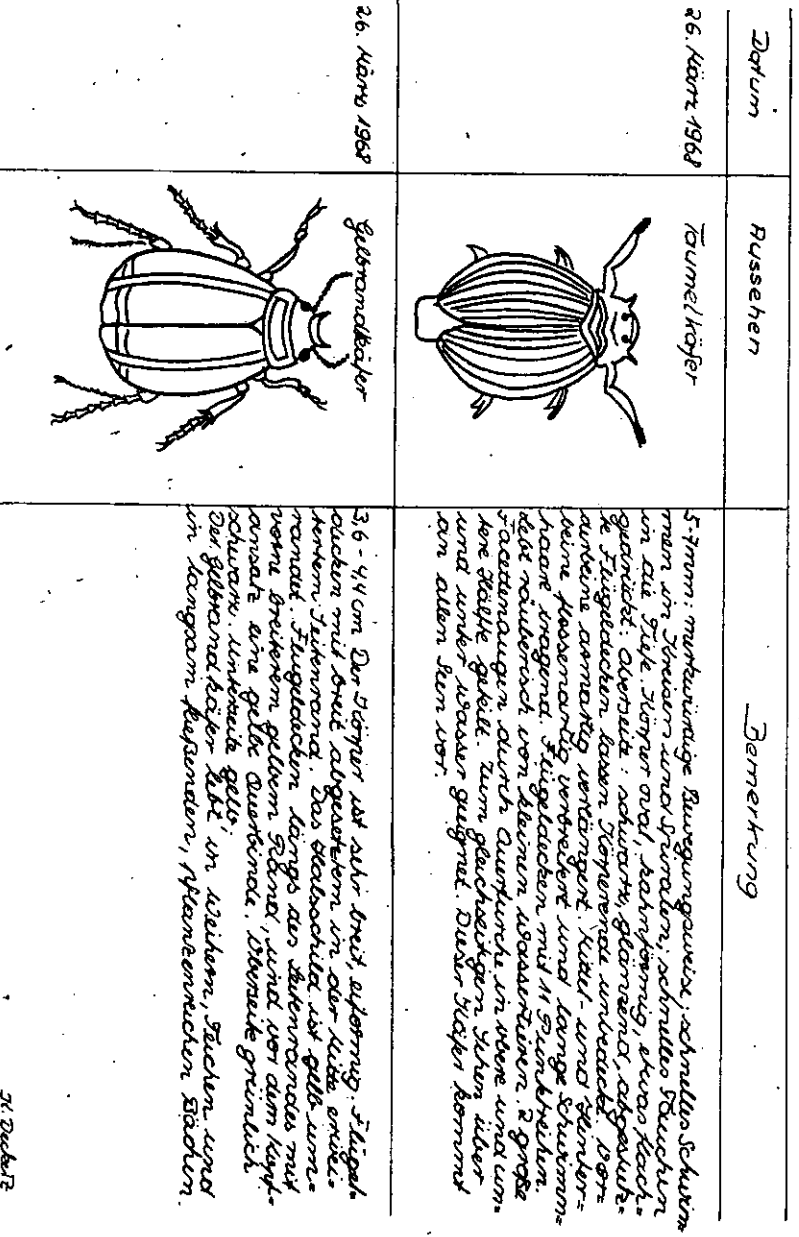 Datum
Aussehen
Bemerkung
26. März 1968
Taumelkäfer
5-7mm: merkwürdige Bewegungsweise; schnelles Schwim=
men in Kreisen und Spiralen; schnelles Tauchen
in die Tiefe. Körper oval, kahnförmig, etwas flach=
gedrückt: Oberseite: schwarz, glänzend, abgestutz=
te Flügeldecken lassen Körperende unbedeckt. Vor=
derbeine armartig verlängert. Mittel- und Hinter=
beine flossenartig verbreitert und lange Schwimm=
haare tragend. Flügeldecken mit 11 Punktreihen.
Lebt räuberisch von kleinen Wassertieren. 2 große
Facettenaugen durch Querfurche in obere und un=
tere Hälfte geteilt. Zum gleichzeitigen Sehen über
und unter Wasser geeignet. Dieser Käfer kommt
an allen Seen vor.
26. März 1968
Gelbrandkäfer
3,6-4,4 cm Der Körper ist sehr breit, eiförmig. Flügel=
decken mit breit abgesetztem in der Mitte erwei=
tertem Seitenrand. Das Halsschild ist gelb um=
randet. Flügeldecken längs des Seitenrandes mit
vorne breiterem gelbem Rand, und vor dem Kopf=
ansatz eine gelbe Querbinde. Oberseite grünlich
schwarz. Unterseite gelb;
Der Gelbrandkäfer lebt in Weihern, Teichen und
in langsam fließenden, pflanzenreichen Bächen.